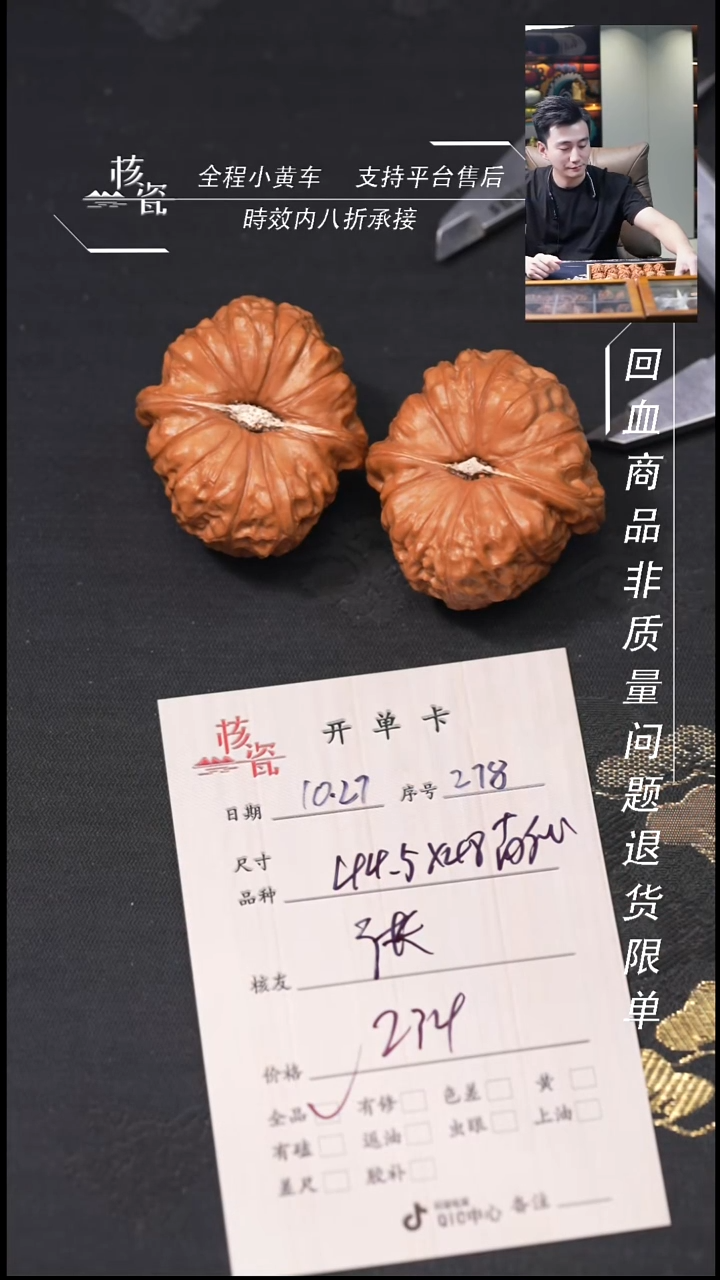 核瓷
全程小黄车 支持平台售后
時效内八折承接
回血商品非质量问题退货限单
核瓷
开单卡
日期 10.27 序号 278
尺寸
品种 44.5X48
核友 张
价格 234
全品 有修 色差 黄
有磕 返油 虫眼 上油
差尺 胶补
QIC中心 备注